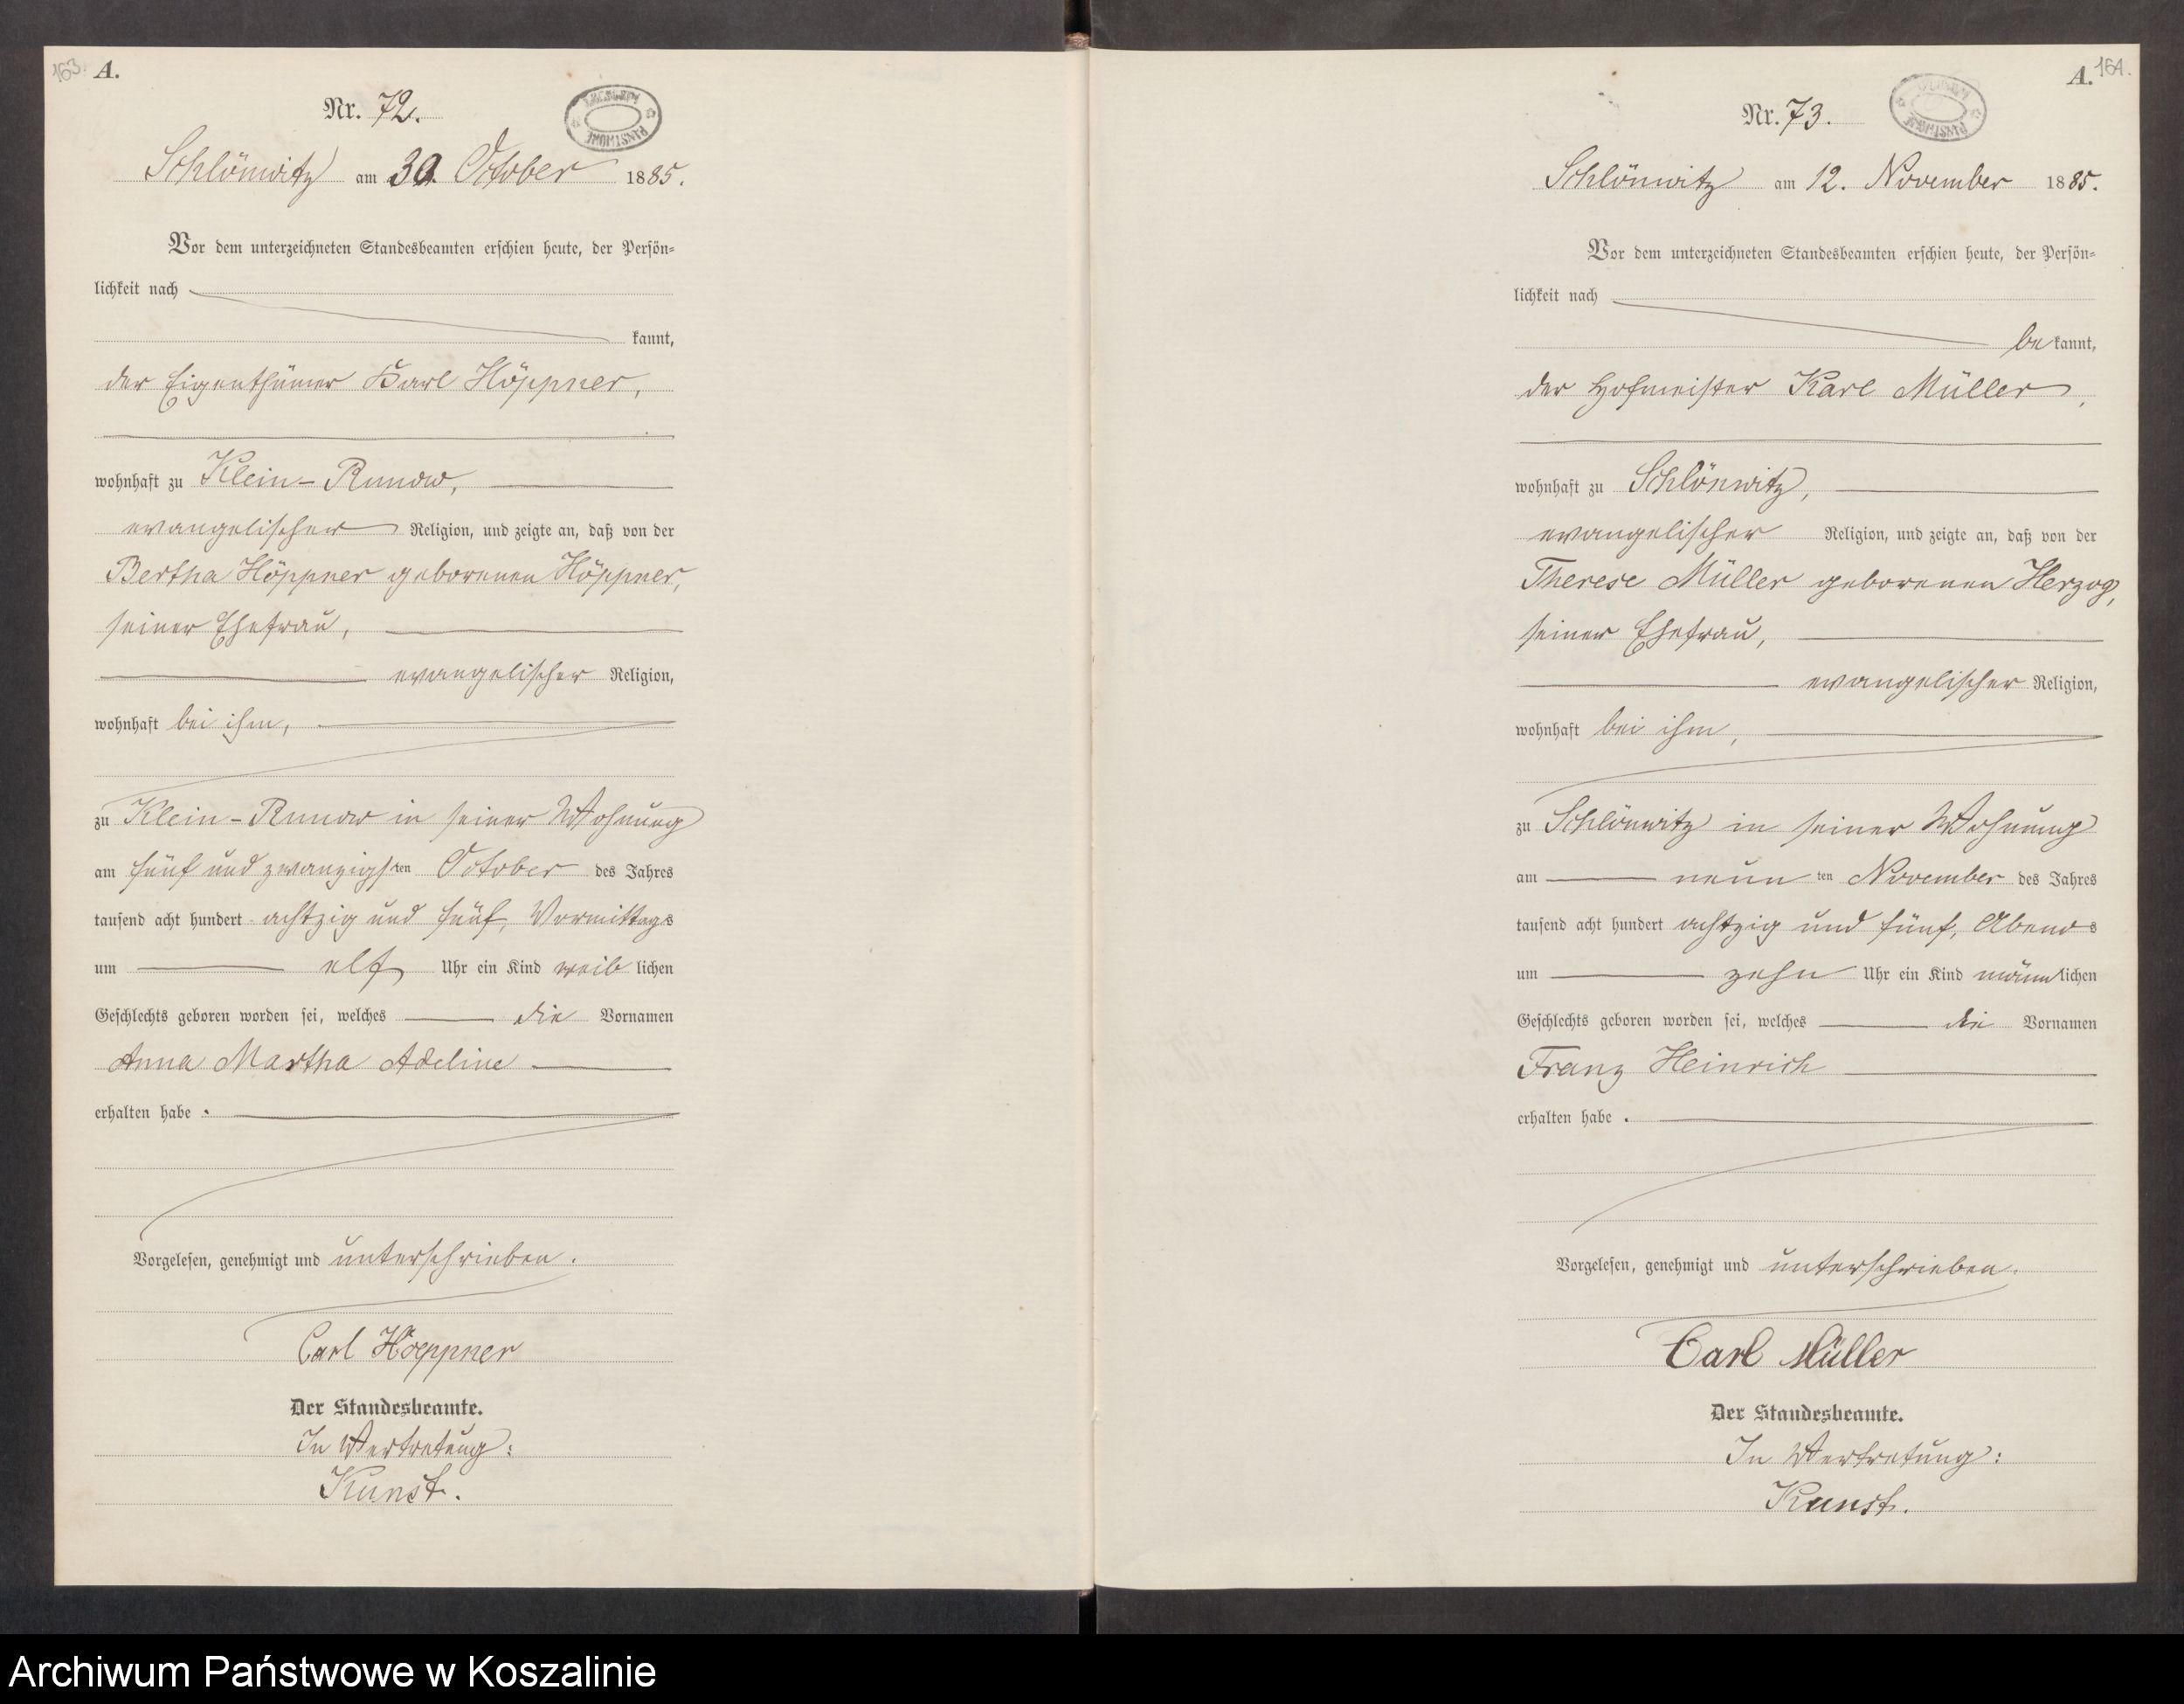 163. A.
Nr. 72.
Schlönwitz am 30. October 1885.
Vor dem unterzeichneten Standesbeamten erschien heute, der Persön-
lichkeit nach
kannt,
der Eigenthümer Karl Höppner,
wohnhaft zu Klein-Runow,
evangelischer Religion, und zeigte an, daß von der
Bertha Höppner geborenen Höppner,
seiner Ehefrau,
evangelischer Religion,
wohnhaft bei ihm,
zu Klein-Runow in seiner Wohnung
am fünf und zwanzigsten October des Jahres
tausend acht hundert achtzig und fünf, Vormittags
um elf Uhr ein Kind weiblichen
Geschlechts geboren worden sei, welches die Vornamen
Anna Martha Adeline
erhalten habe.
Vorgelesen, genehmigt und unterschrieben.
Carl Höppner
Der Standesbeamte.
In Vertretung:
Kunst.
A. 164.
Nr. 73.
Schlönwitz am 12. November 1885.
Vor dem unterzeichneten Standesbeamten erschien heute, der Persön-
lichkeit nach
bekannt,
der Hofmeister Karl Müller,
wohnhaft zu Schlönwitz,
evangelischer Religion, und zeigte an, daß von der
Therese Müller geborenen Herzog,
seiner Ehefrau,
evangelischer Religion,
wohnhaft bei ihm,
zu Schlönwitz in seiner Wohnung
am neunten November des Jahres
tausend acht hundert achtzig und fünf, Abends
um zehn Uhr ein Kind männlichen
Geschlechts geboren worden sei, welches die Vornamen
Franz Heinrich
erhalten habe.
Vorgelesen, genehmigt und unterschrieben.
Carl Müller
Der Standesbeamte.
In Vertretung:
Kunst.
Archiwum Państwowe w Koszalinie